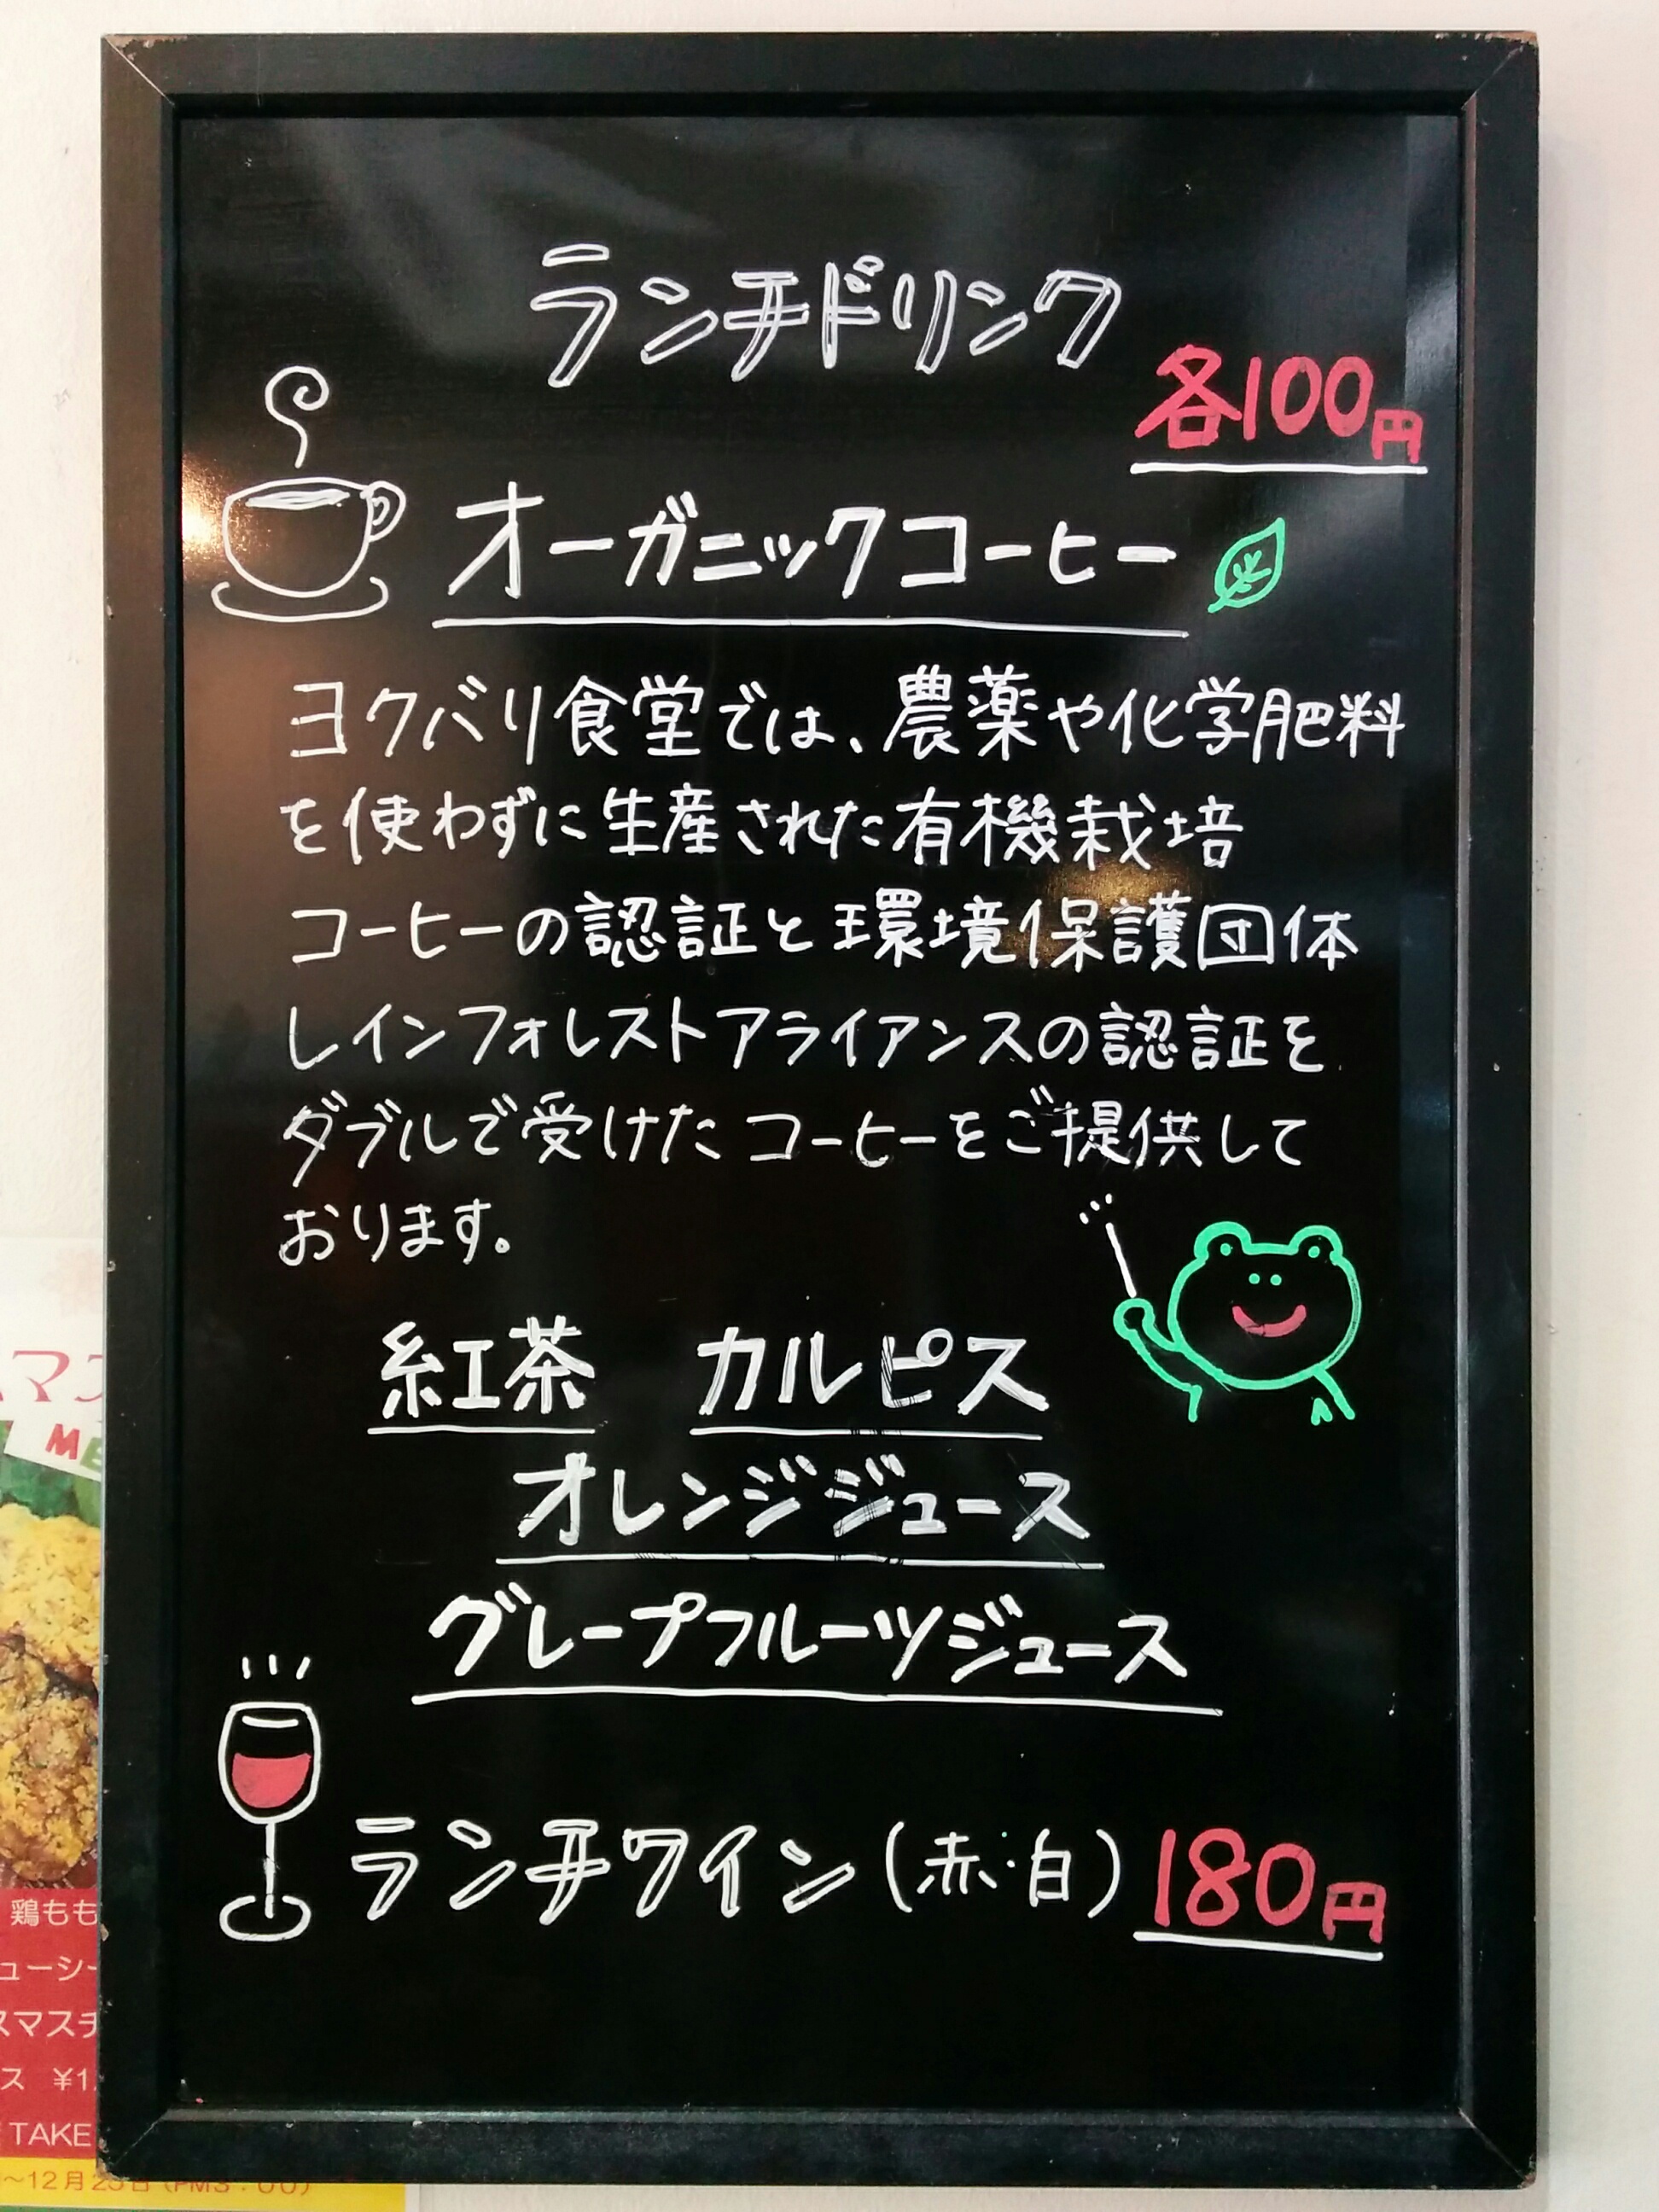 ランチドリンク
各100円
オーガニックコーヒー
ヨクバリ食堂では、農薬や化学肥料
を使わずに生産された有機栽培
コーヒーの認証と環境保護団体
レインフォレストアライアンスの認証を
ダブルで受けたコーヒーをご提供して
おります。
紅茶 カルピス
オレンジジュース
グレープフルーツジュース
ランチワイン(赤・白) 180円
スマス
ME
鶏もも
ューシー
スマスチ
ス ¥1,
TAKE
～12月25日(PM3:00)